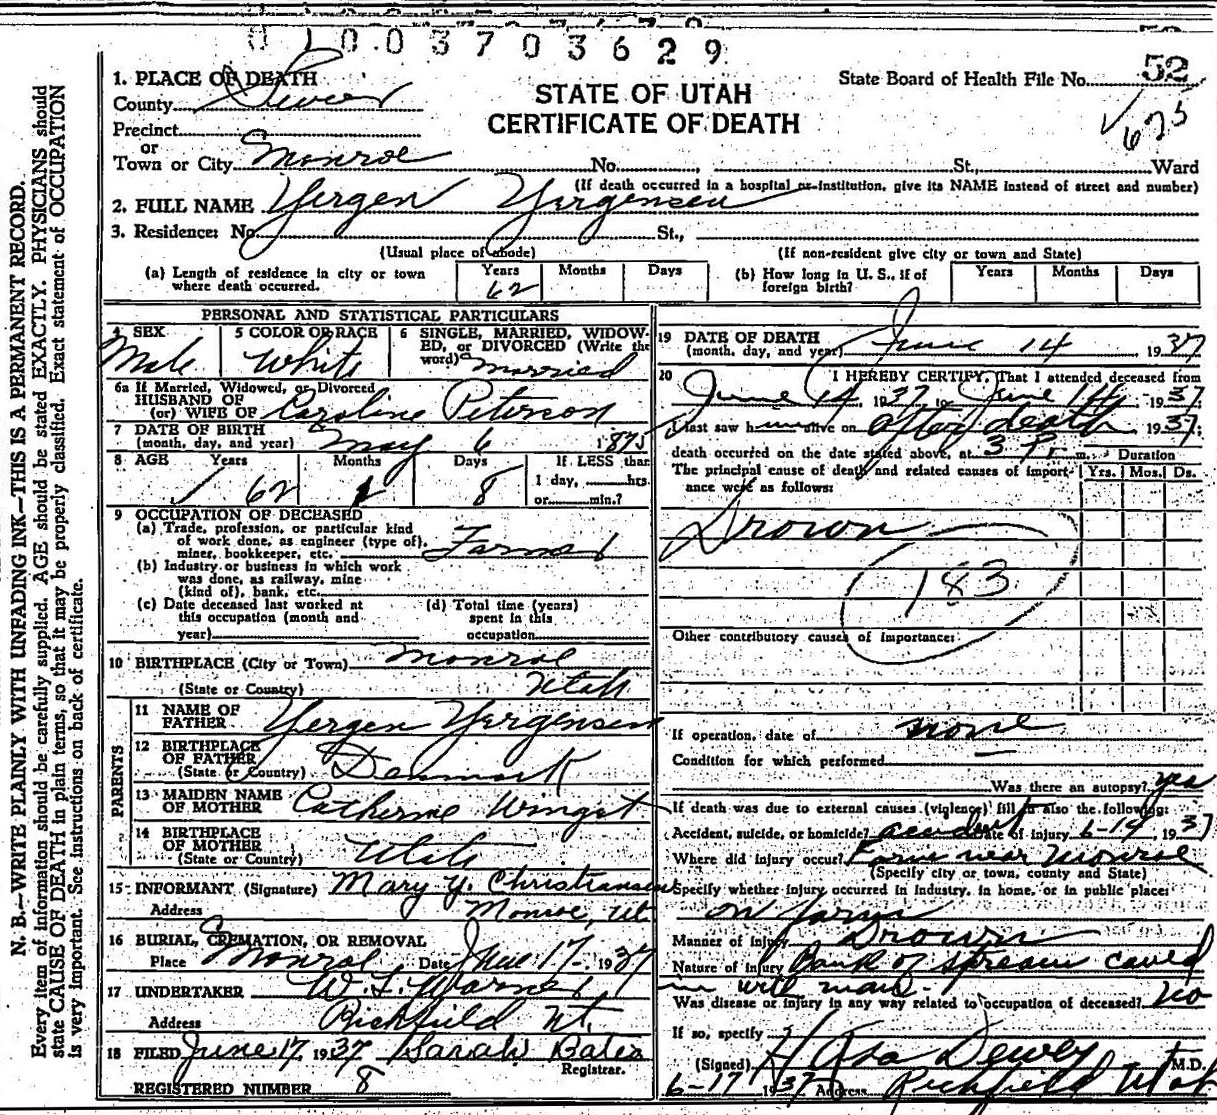 0100370 3629
1. PLACE OF DEATH
County Sevier
STATE OF UTAH
CERTIFICATE OF DEATH
State Board of Health File No. 52
675
Precinct
or
Town or City Monroe No. , St., Ward
(If death occurred in a hospital or institution, give its NAME instead of street and number)
2. FULL NAME Yergen Yergensen
3. Residence: No. St.,
(Usual place of abode) (If non-resident give city or town and State)
(a) Length of residence in city or town where death occurred. Years 62 Months Days
(b) How long in U. S., if of foreign birth? Years Months Days
PERSONAL AND STATISTICAL PARTICULARS
4 SEX Male
5 COLOR OR RACE White
6 SINGLE, MARRIED, WIDOWED, or DIVORCED (Write the word) Married
6a If Married, Widowed, or Divorced
HUSBAND OF
(or) WIFE OF Caroline Peterson
7 DATE OF BIRTH
(month, day, and year) May 6 1875
8 AGE Years 62 Months 1 Days 8 If LESS than 1 day, hrs. or min.?
9 OCCUPATION OF DECEASED
(a) Trade, profession, or particular kind
of work done, as engineer (type of),
miner, bookkeeper, etc. Farmer
(b) Industry or business in which work
was done, as railway, mine
(kind of), bank, etc.
(c) Date deceased last worked at
this occupation (month and
year)
(d) Total time (years)
spent in this
occupation
10 BIRTHPLACE (City or Town) Monroe
(State or Country) Utah
PARENTS
11 NAME OF
FATHER Yergen Yergensen
12 BIRTHPLACE
OF FATHER
(State or Country) Denmark
13 MAIDEN NAME
OF MOTHER Catherine
14 BIRTHPLACE
OF MOTHER
(State or Country) Utah
15 INFORMANT (Signature) Mary Y. Christiansen
Address Monroe, Ut.
16 BURIAL, CREMATION, OR REMOVAL
Place Monroe Date June 17- 1937
17 UNDERTAKER
Address Richfield Ut.
18 FILED June 17, 1937 Sarah Bates
Registrar.
REGISTERED NUMBER 8
19 DATE OF DEATH
(month, day, and year) June 14 1937
20 I HEREBY CERTIFY, That I attended deceased from
June 14 1937 to June 14 1937
I last saw him alive on after death 1937;
death occurred on the date stated above, at 3 P. m. Duration
The principal cause of death and related causes of importance were as follows: Yrs. Mos. Ds.
Drown
183
Other contributory causes of importance:
If operation, date of none
Condition for which performed —
Was there an autopsy? yes
If death was due to external causes (violence) fill in also the following:
Accident, suicide, or homicide? accident Date of injury 6-14, 1937
Where did injury occur? Farm near Monroe
(Specify city or town, county and State)
Specify whether injury occurred in industry, in home, or in public place:
on farm
Manner of injury Drown
Nature of injury Bank of stream caved
in with man.
Was disease or injury in any way related to occupation of deceased? no
If so, specify
(Signed) Asa Dewey M.D.
6-17 1937 Address Richfield Utah
N. B.—WRITE PLAINLY WITH UNFADING INK—THIS IS A PERMANENT RECORD.
Every item of information should be carefully supplied. AGE should be stated EXACTLY. PHYSICIANS should
state CAUSE OF DEATH in plain terms, so that it may be properly classified. Exact statement of OCCUPATION
is very important. See instructions on back of certificate.